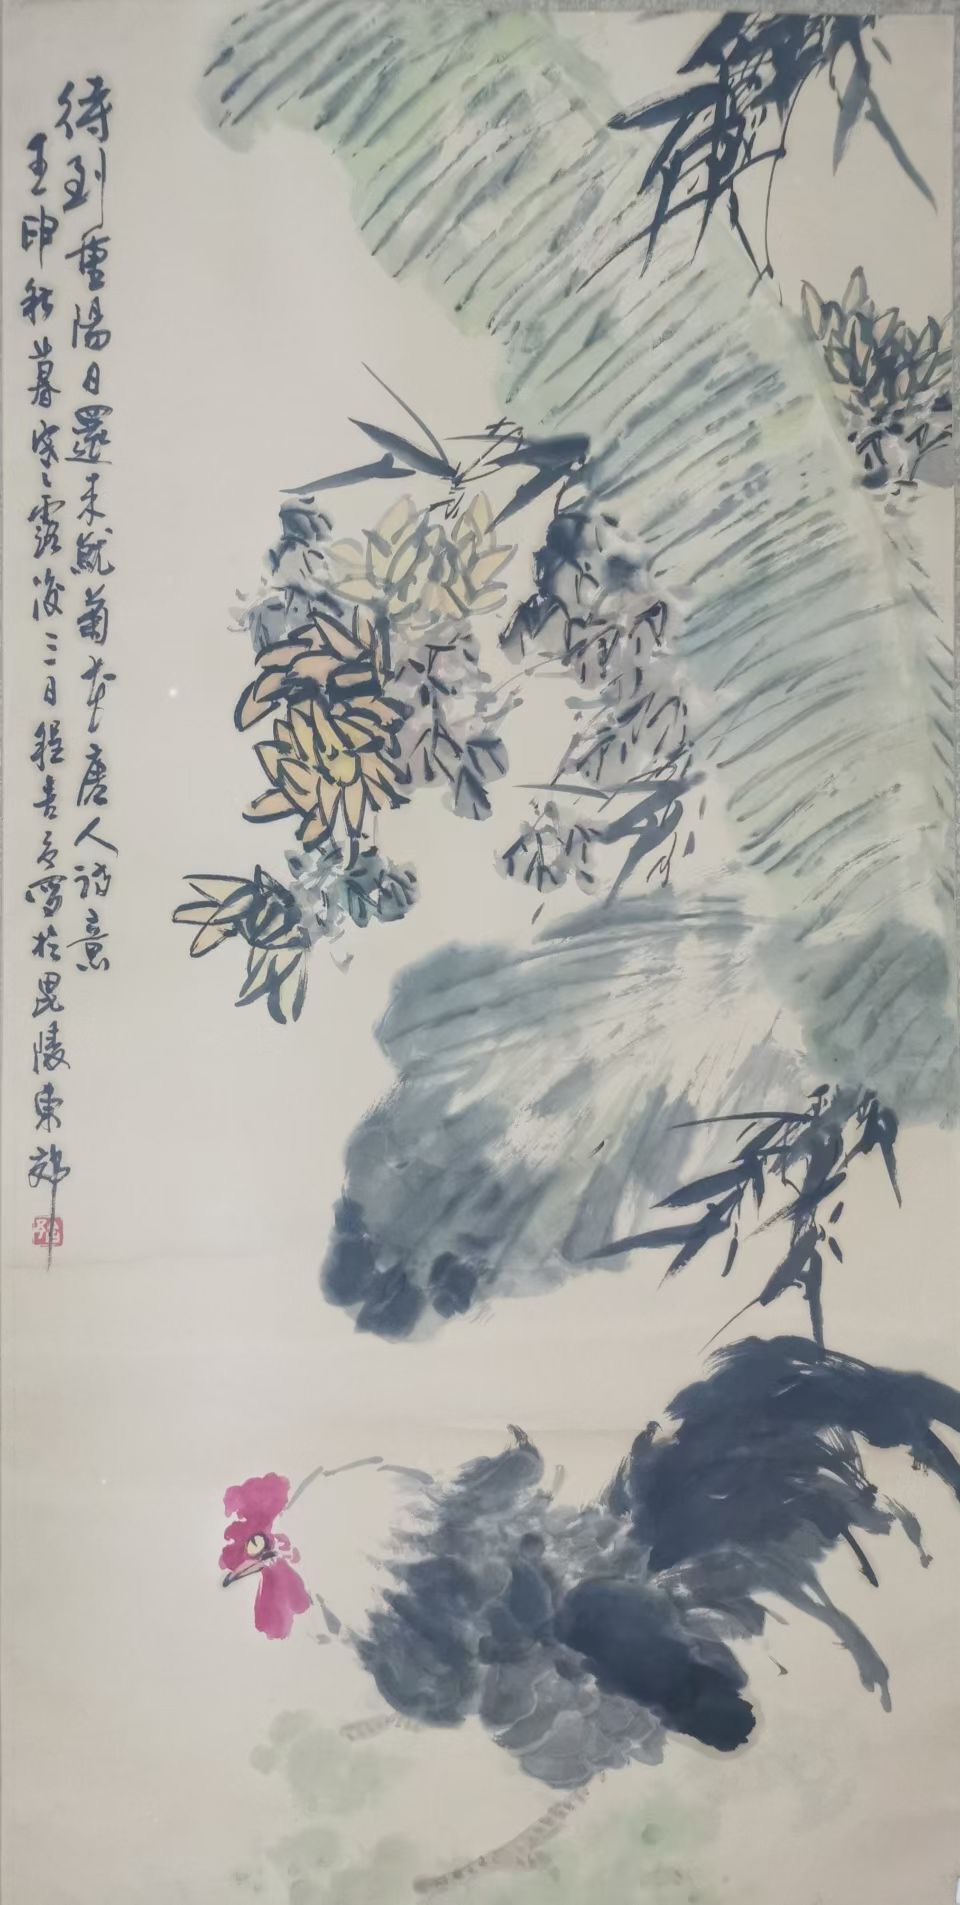 待到重陽日還来就菊花唐人詩意
壬申秋暮寒露後三日程写於毘陵東郊